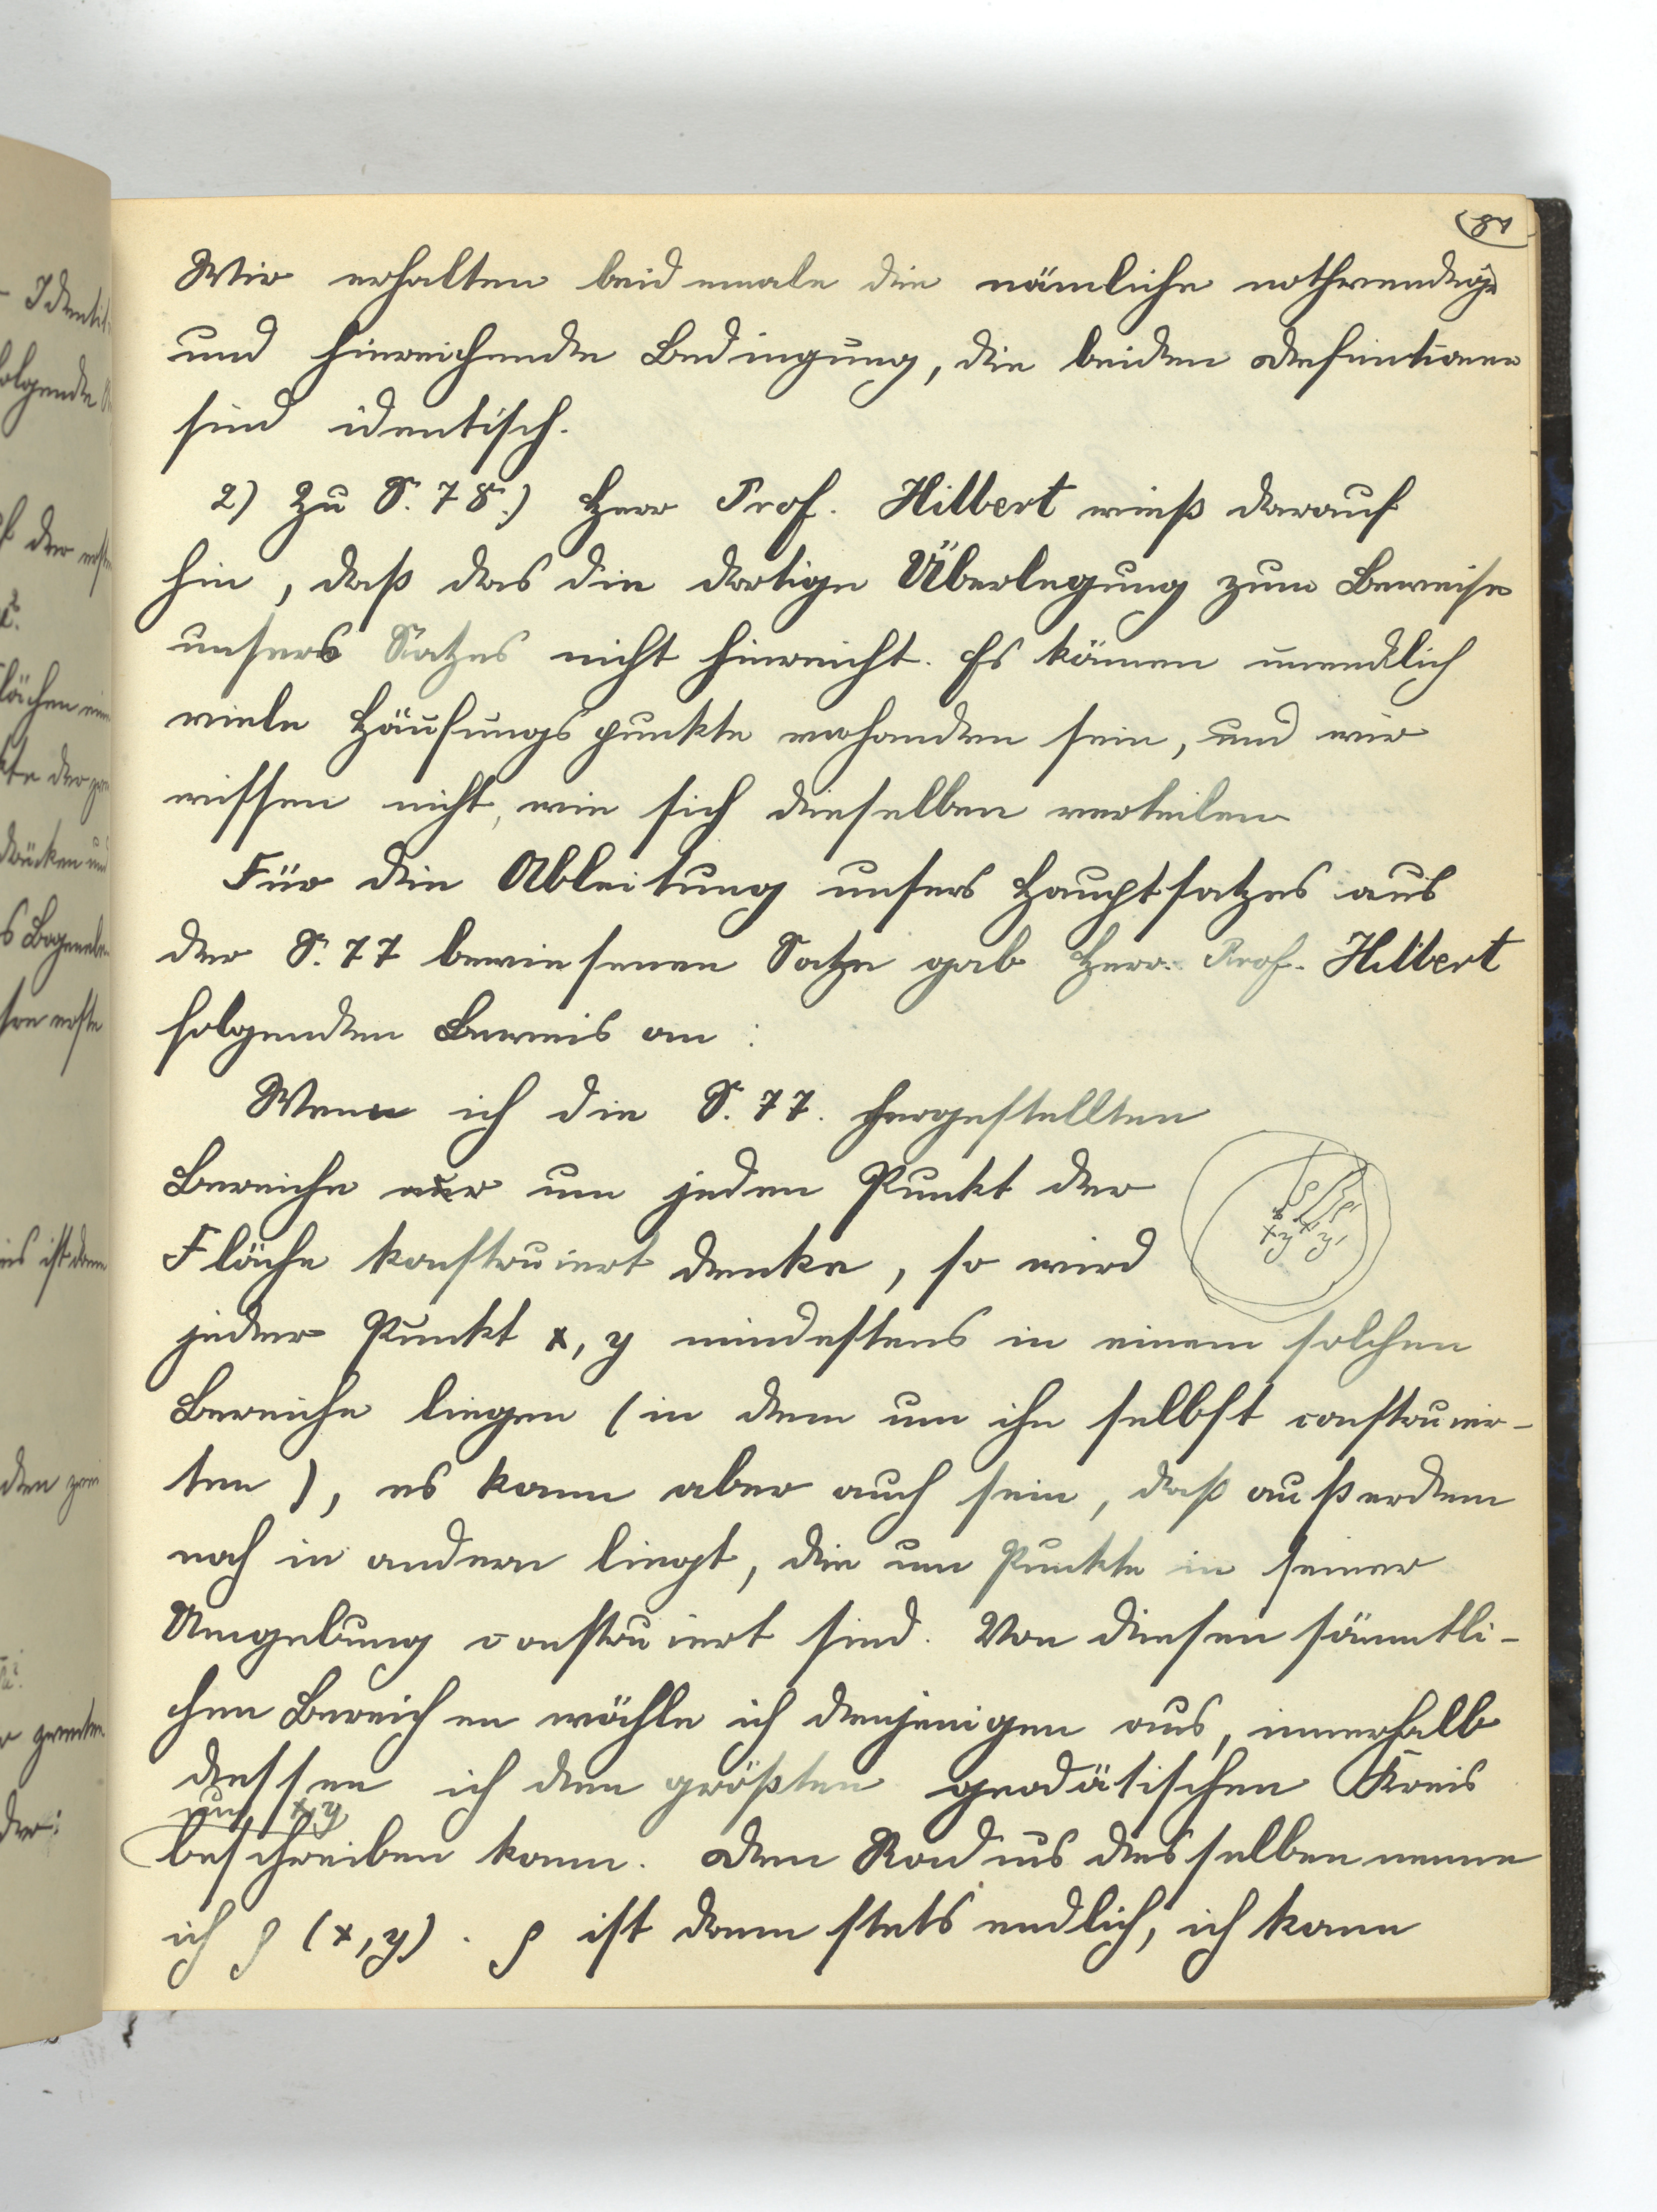 81
Wir erhalten beidemale die nämliche nothwendige
und hinreichende Bedingung, die beiden Definitionen
sind identisch.
2) Zu S. 78.) Herr Prof. Hilbert wieß darauf
hin, daß das die dortige Überlegung zum Beweise
unsers Satzes nicht hinreicht. Es können unendlich
viele Häufungspunkte vorhanden sein, und wir
wissen nicht, wie sich dieselben verteilen
Für die Ableitung unsers Hauptsatzes aus
der S. 77 bewiesenen Satze gab Herr Prof. Hilbert
folgenden Beweis an:
Wenn ich die S. 77. hergestellten
Bereiche um jeden Punkt der
Fläche konstruiert denke, so wird
jeder Punkt x, y mindestens in einem solchen
Bereiche liegen (in dem um ihn selbst construir-
ten), es kann aber auch sein, daß außerdem
noch in andern liegt, die um Punkte in seiner
Umgebung construiert sind. Von diesen sämmtli-
chen Bereichen wähle ich denjenigen aus, innerhalb
dessen ich den größten geodätischen Kreis
um x, y
beschreiben kann. Den Radius desselben nenne
ich ρ (x, y). ρ ist dann stets endlich, ich kann